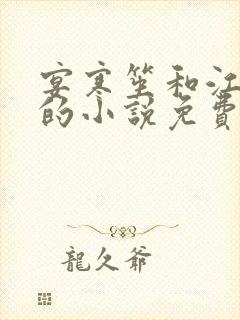 宴寒笙和江
的小說免費
龍久爺